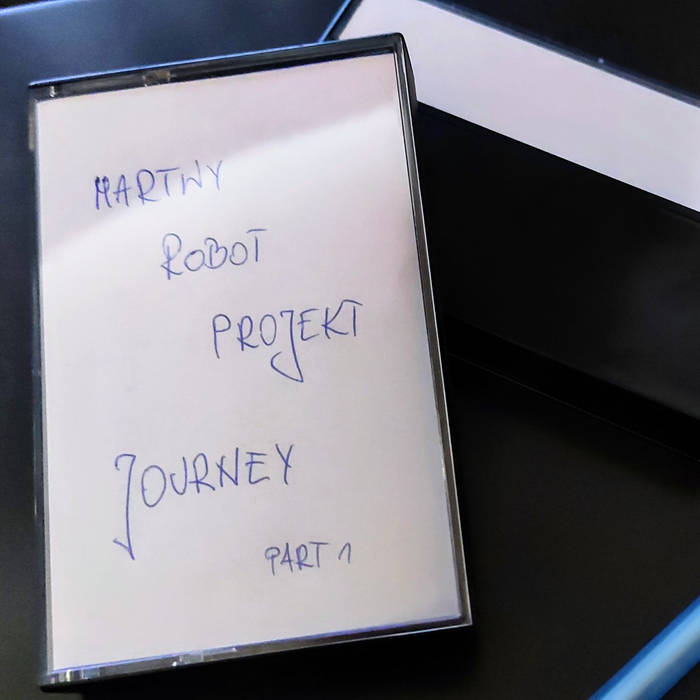 MARTWY
ROBOT
PROJEKT
JOURNEY
PART 1